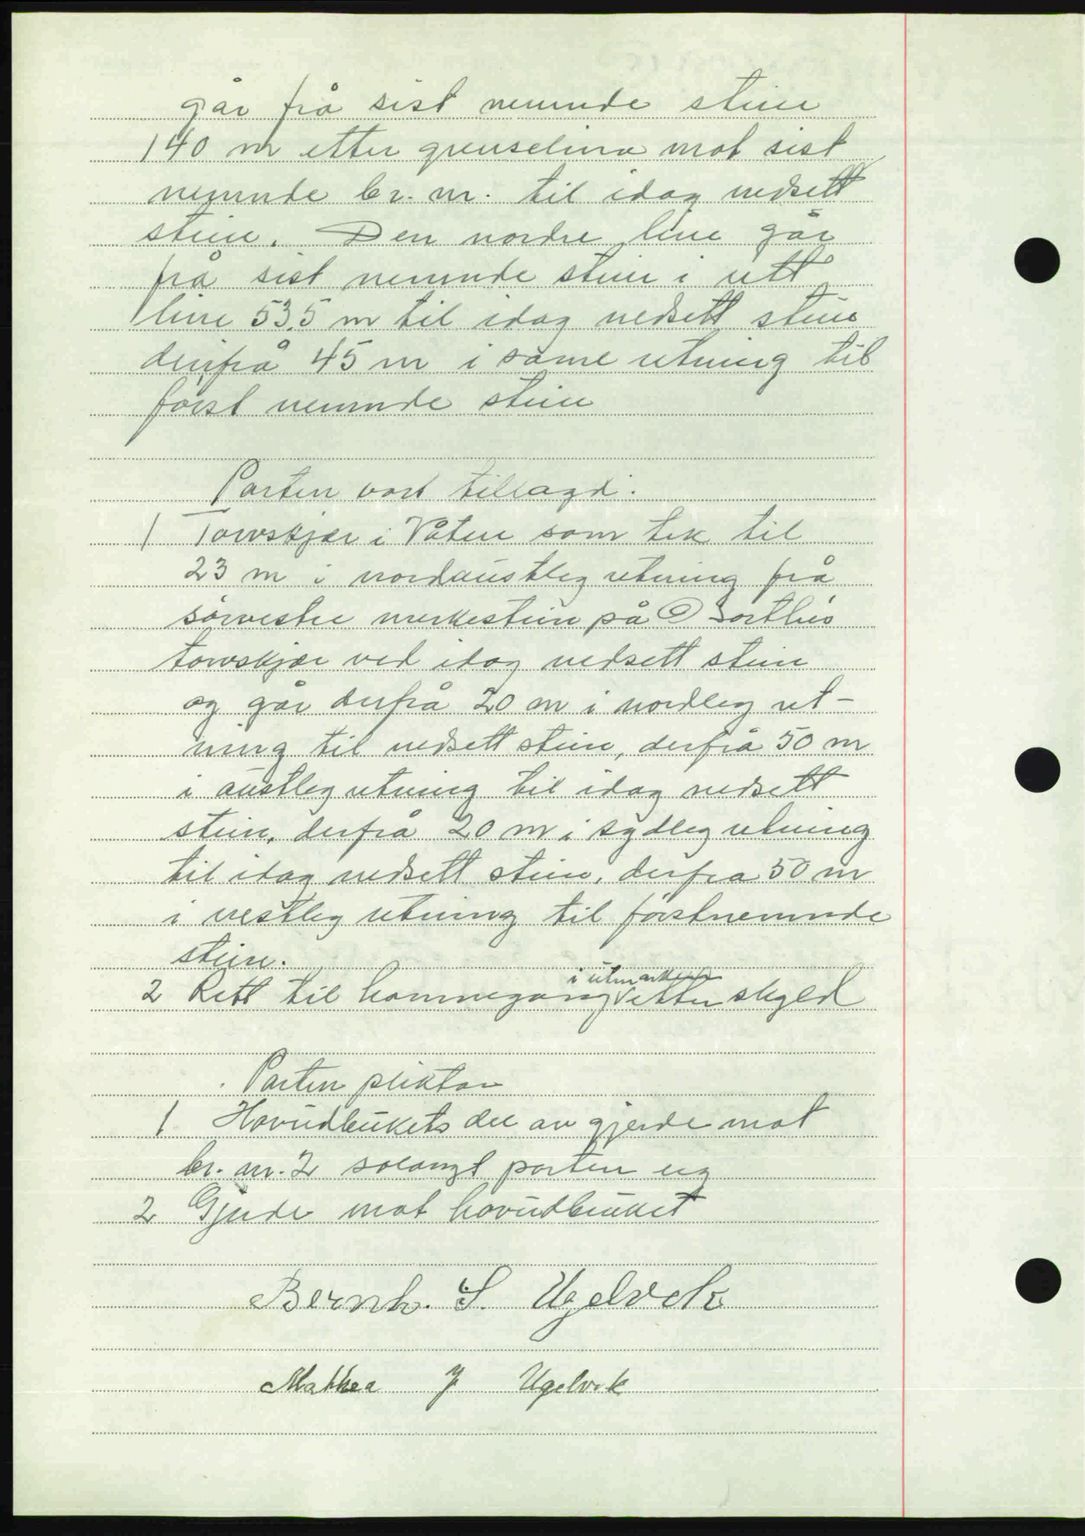 går frå sist nemnde stein
140 m etter grenselina mot sist
nemnde br. nr. til idag nedsett
stein. Den nordre line går
frå sist nemnde stein i rett
line 53,5 m til idag nedsett stein
derfrå 45 m i same retning til
først nemnde stein
Parten vart tillagd:
1 Torvskjær i Våten som tek til
23 m i nordaustleg retning frå
sørvestre merkestein på
torvskjær ved idag nedsett stein
og går derfrå 20 m i nordleg ret-
ning til nedsett stein, derfrå 50 m
i austleg retning til idag nedsett
stein, derfrå 20 m i sydleg retning
til idag nedsett stein, derfra 50 m
i vestleg retning til førstnemnde
stein.
2 Rett til hamnegang i utmarken etter skyld
Parten pliktar
1 Hovudbrukets del av gjerde mot
br. nr. 2 solangt parten eig
2 Gjerde mot hovudbruket
Bernh. S. Ugelvik
Mathea J Ugelvik